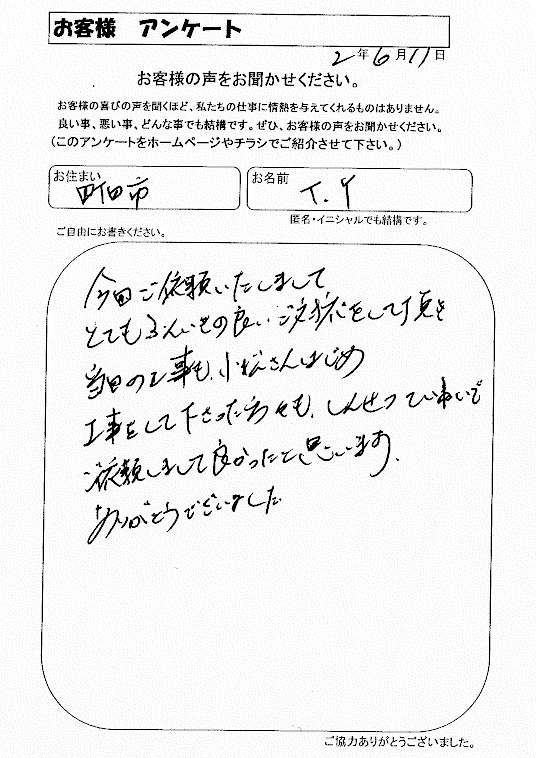 お客様 アンケート
2年6月11日
お客様の声をお聞かせください。
お客様の喜びの声を聞くほど、私たちの仕事に情熱を与えてくれるものはありません。
良い事、悪い事、どんな事でも結構です。ぜひ、お客様の声をお聞かせください。
(このアンケートをホームページやチラシでご紹介させて下さい。)
お住まい
町田市
お名前
T.Y
匿名・イニシャルでも結構です。
ご自由にお書きください。
今回ご依頼いたしまして
とても ふんいきの良いご対応をして頂き
当日の工事も、小松さんはじめ
工事をして下さった方々も、しんせつていねいで
ご依頼しまして良かったと思います。
ありがとうございました
ご協力ありがとうございました。